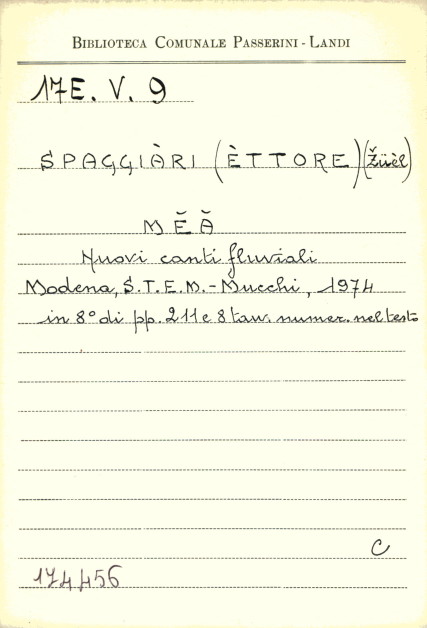 BIBLIOTECA COMUNALE PASSERINI - LANDI
17E. V. 9
SPAGGIÀRI (ÈTTORE) (Žüèl)
MĔĂ
Nuovi canti fluviali
Modena, S.T.E.M. - Mucchi, 1974
in 8° di pp. 211 e 8 tav. numer. nel testo
C
174456